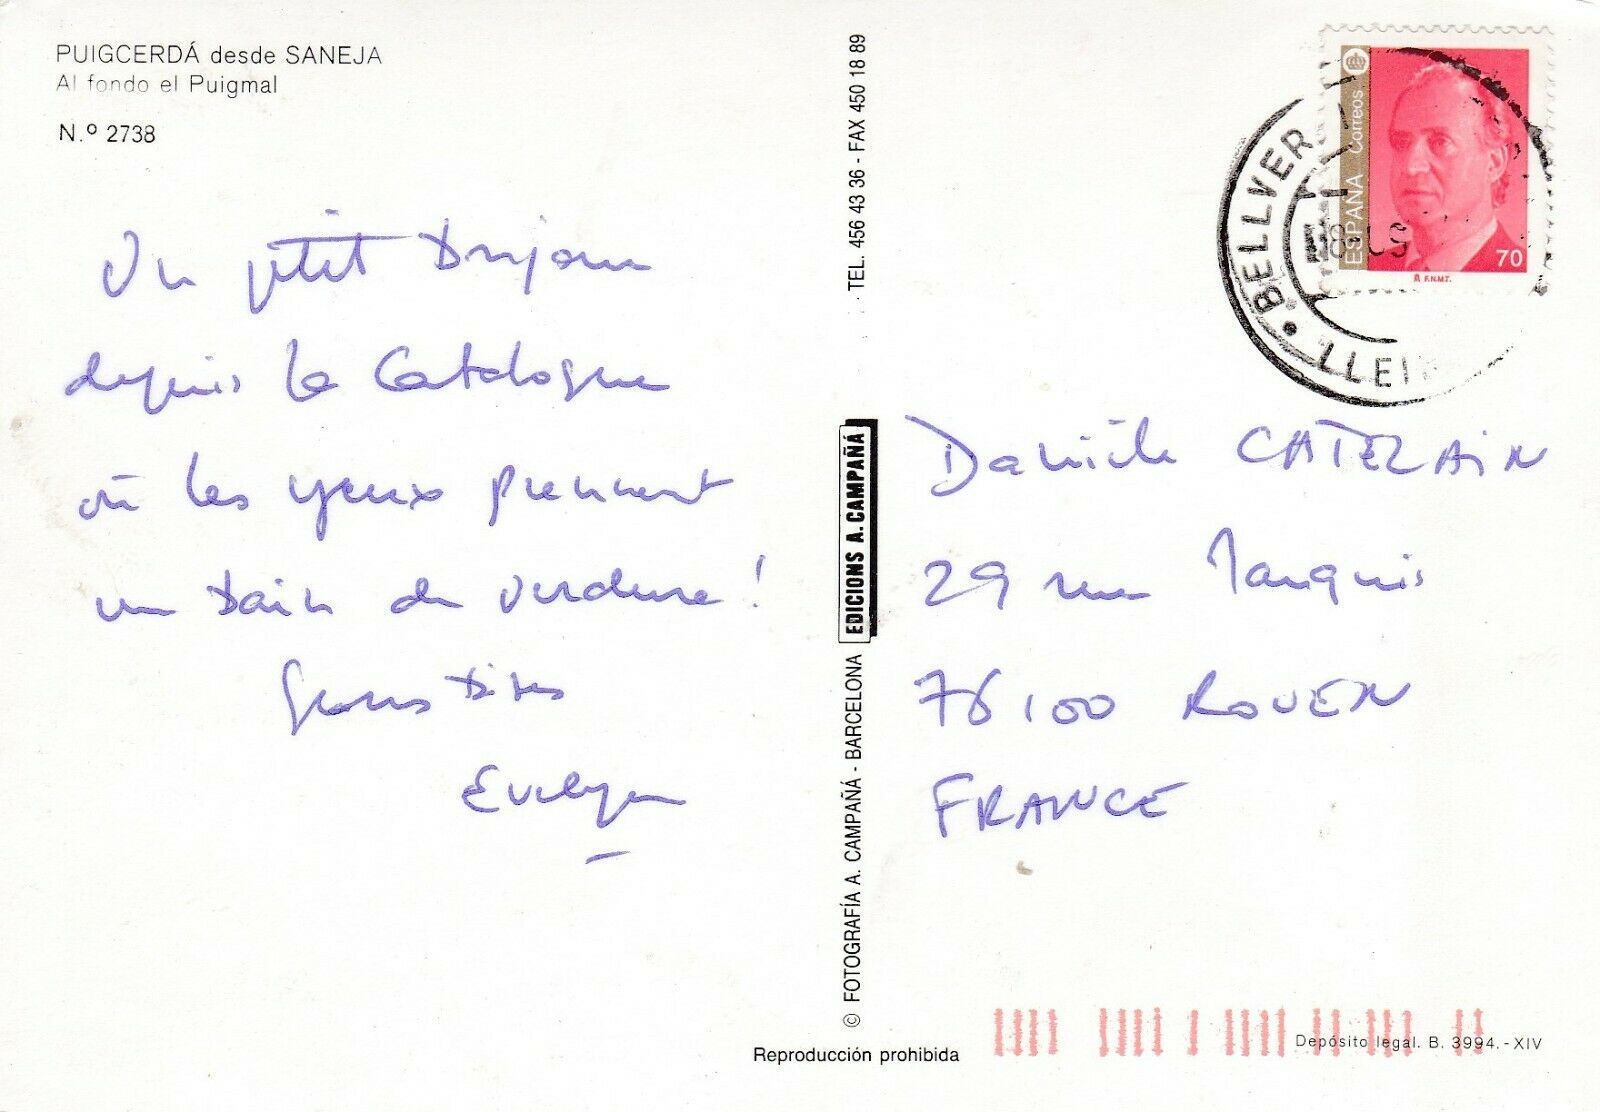 PUIGCERDÁ desde SANEJA
Al fondo el Puigmal
N.º 2738
Un ptit Bonjour
depuis la Catalogne
où les yeux prennent
un bain de verdure !
Gros Bises
Evelyne
© FOTOGRAFÍA A. CAMPAÑÁ - BARCELONA
EDICIONS A. CAMPAÑÁ
TEL. 456 43 36 - FAX 450 18 89
Reproducción prohibida
ESPAÑA Correos
70
F.N.M.T.
BELLVER
LLEI
Danièle CATELAIN
29 rue
76100 ROUEN
FRANCE
Depósito legal. B. 3994.-XIV